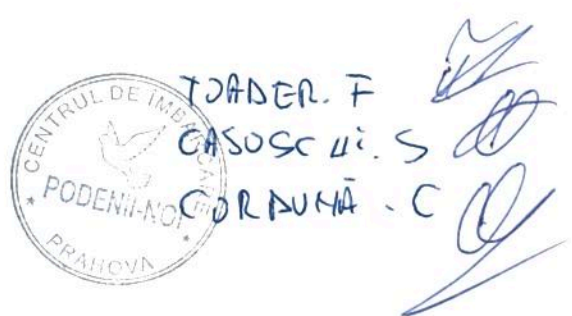 CENTRUL DE ÎMBARCARE
PODENII-NOI
* PRAHOVA *
TOADER. F
CASOSCHI. S
CORDUNĂ. C